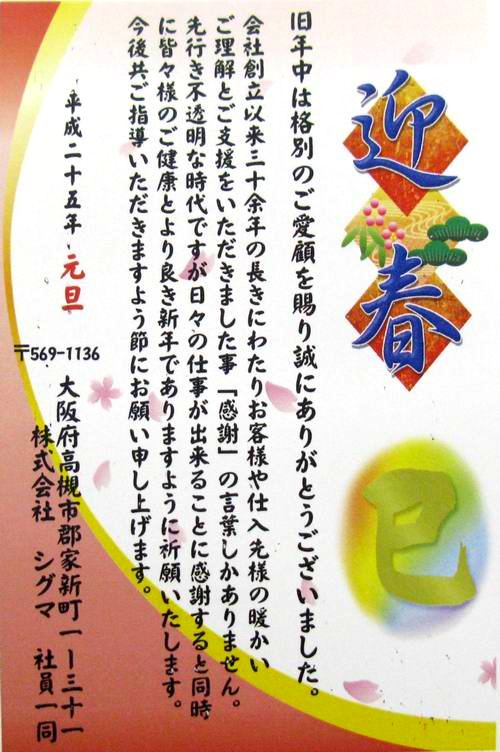 迎春
巳
旧年中は格別のご愛顧を賜り誠にありがとうございました。
会社創立以来三十余年の長きにわたりお客様や仕入先様の暖かい
ご理解とご支援をいただきました事「感謝」の言葉しかありません。
先行き不透明な時代ですが日々の仕事が出来ることに感謝すると同時
に皆々様のご健康とより良き新年でありますように祈願いたします。
今後共ご指導いただきますよう節にお願い申し上げます。
平成二十五年 元旦
〒569-1136
大阪府高槻市郡家新町一ー三十一
株式会社 シグマ 社員一同